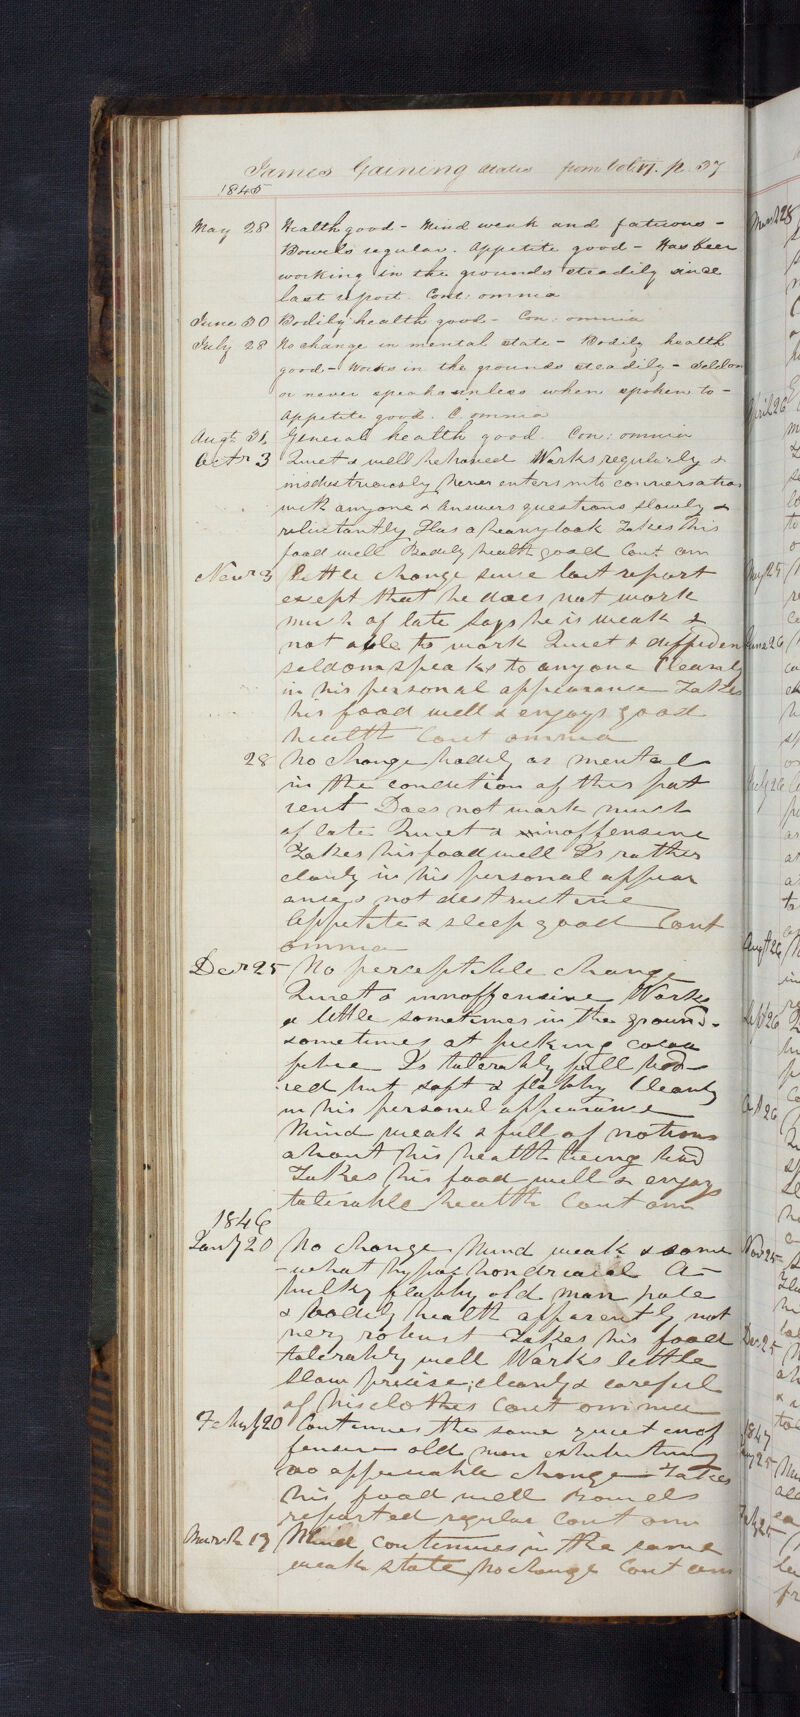 James Gaining states from Vol. VI. p. 37
1845
May 28 Health good - Mind weak and fatuous -
Bowels regular. Appetite good - Has been
working in the grounds steadily since
last report. Cont: omnia
June 30 Bodily health good - Con: omnia
July 28 No change in mental state - Bodily health
good - Works in the grounds steadily - Seldom
or never speaks unless when spoken to -
Appetite good. C. omnia
Augt 31 General health good. Con: omnia
Octr 3 Quiet & well behaved Works regularly &
industriously Never enters into conversation
with anyone & Answers questions slowly &
reluctantly Has a heavy look Takes his
food well Bodily health good Cont om
Novr 3 Little change since last report
except that he does not work
much of late Says he is weak &
not able to work Quiet & diffident
seldom speaks to anyone Cleanly
in his personal appearance Takes
his food well & enjoys good
health Cont omnia
28 No change bodily or mental
in the condition of this pat
ient Does not work much
of late Quiet & inoffensive
Takes his food well Is rather
cleanly in his personal appear
ance & not destructive
Appetite & sleep good Cont
omnia
Decr 25 No perceptible change
Quiet & innoffensive Works
a little sometimes in the ground-
sometimes at picking cocoa
fibre Is tolerably full bod-
ied but soft & flabby Cleanly
in his personal appearance
Mind weak & full of notions
about his health being bad
Takes his food well & enjoys
tolerable health Cont om
1846
Jany 20 No change Mind weak & some
-what hypochondriacal A
bulky flabby old man pale
& bodily health apparently not
very robust Takes his food
tolerably well Works little
Slow precise; cleanly & careful
of his clothes Cont omnia
Febuy 20 Continues the same quiet inof
fensive old man exhibiting
no appreciable change Takes
his food well Bowels
reported regular Cont om
March 19 Mind continues in the same
weak state No change Cont om
March 28
April 26
May 25
June 26
July 26
Augt 26
Sept 26
Oct 26
Nov 25
Dec 25
1847
Feby 25